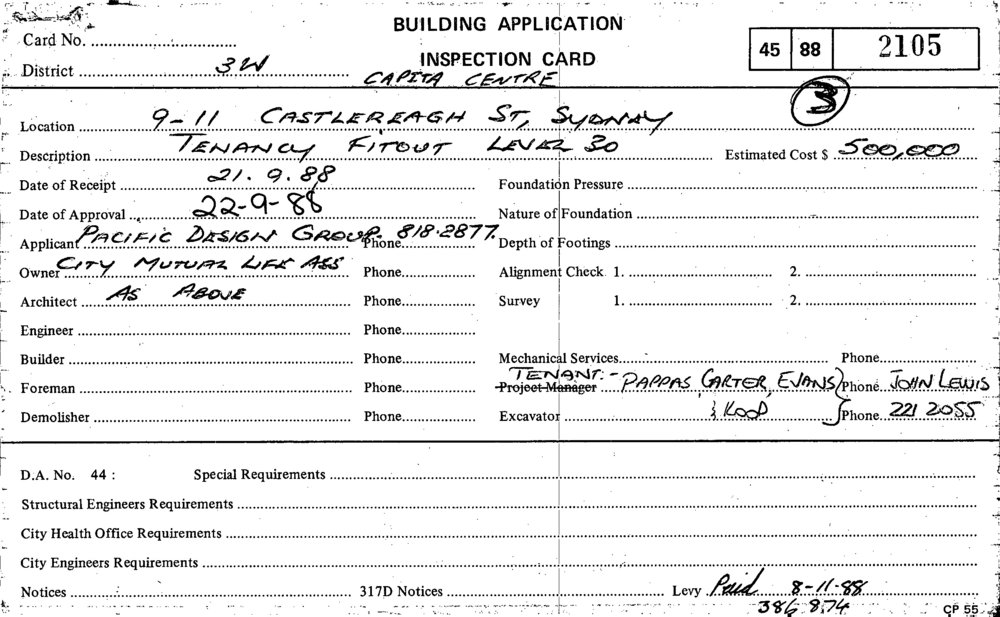 BUILDING APPLICATION
Card No.
45 88 2105
INSPECTION CARD
District 3W
CAPITA CENTRE
3
Location 9-11 CASTLEREAGH ST, SYDNEY
Description TENANCY FITOUT LEVEL 30 Estimated Cost $ 500,000
Date of Receipt 21.9.88 Foundation Pressure
Date of Approval 22-9-88 Nature of Foundation
Applicant PACIFIC DESIGN GROUP. Phone 818.2877. Depth of Footings
Owner CITY MUTUAL LIFE ASS Phone Alignment Check 1. 2.
Architect AS ABOVE Phone Survey 1. 2.
Engineer Phone
Builder Phone Mechanical Services Phone
TENANT:-
Foreman Phone Project Manager PAPPAS, CARTER, EVANS Phone JOHN LEWIS
Demolisher Phone Excavator & KOOP Phone 221 2055
D.A. No. 44 : Special Requirements
Structural Engineers Requirements
City Health Office Requirements
City Engineers Requirements
Notices 317D Notices Levy Paid 8-11-88
386 874
CP 55